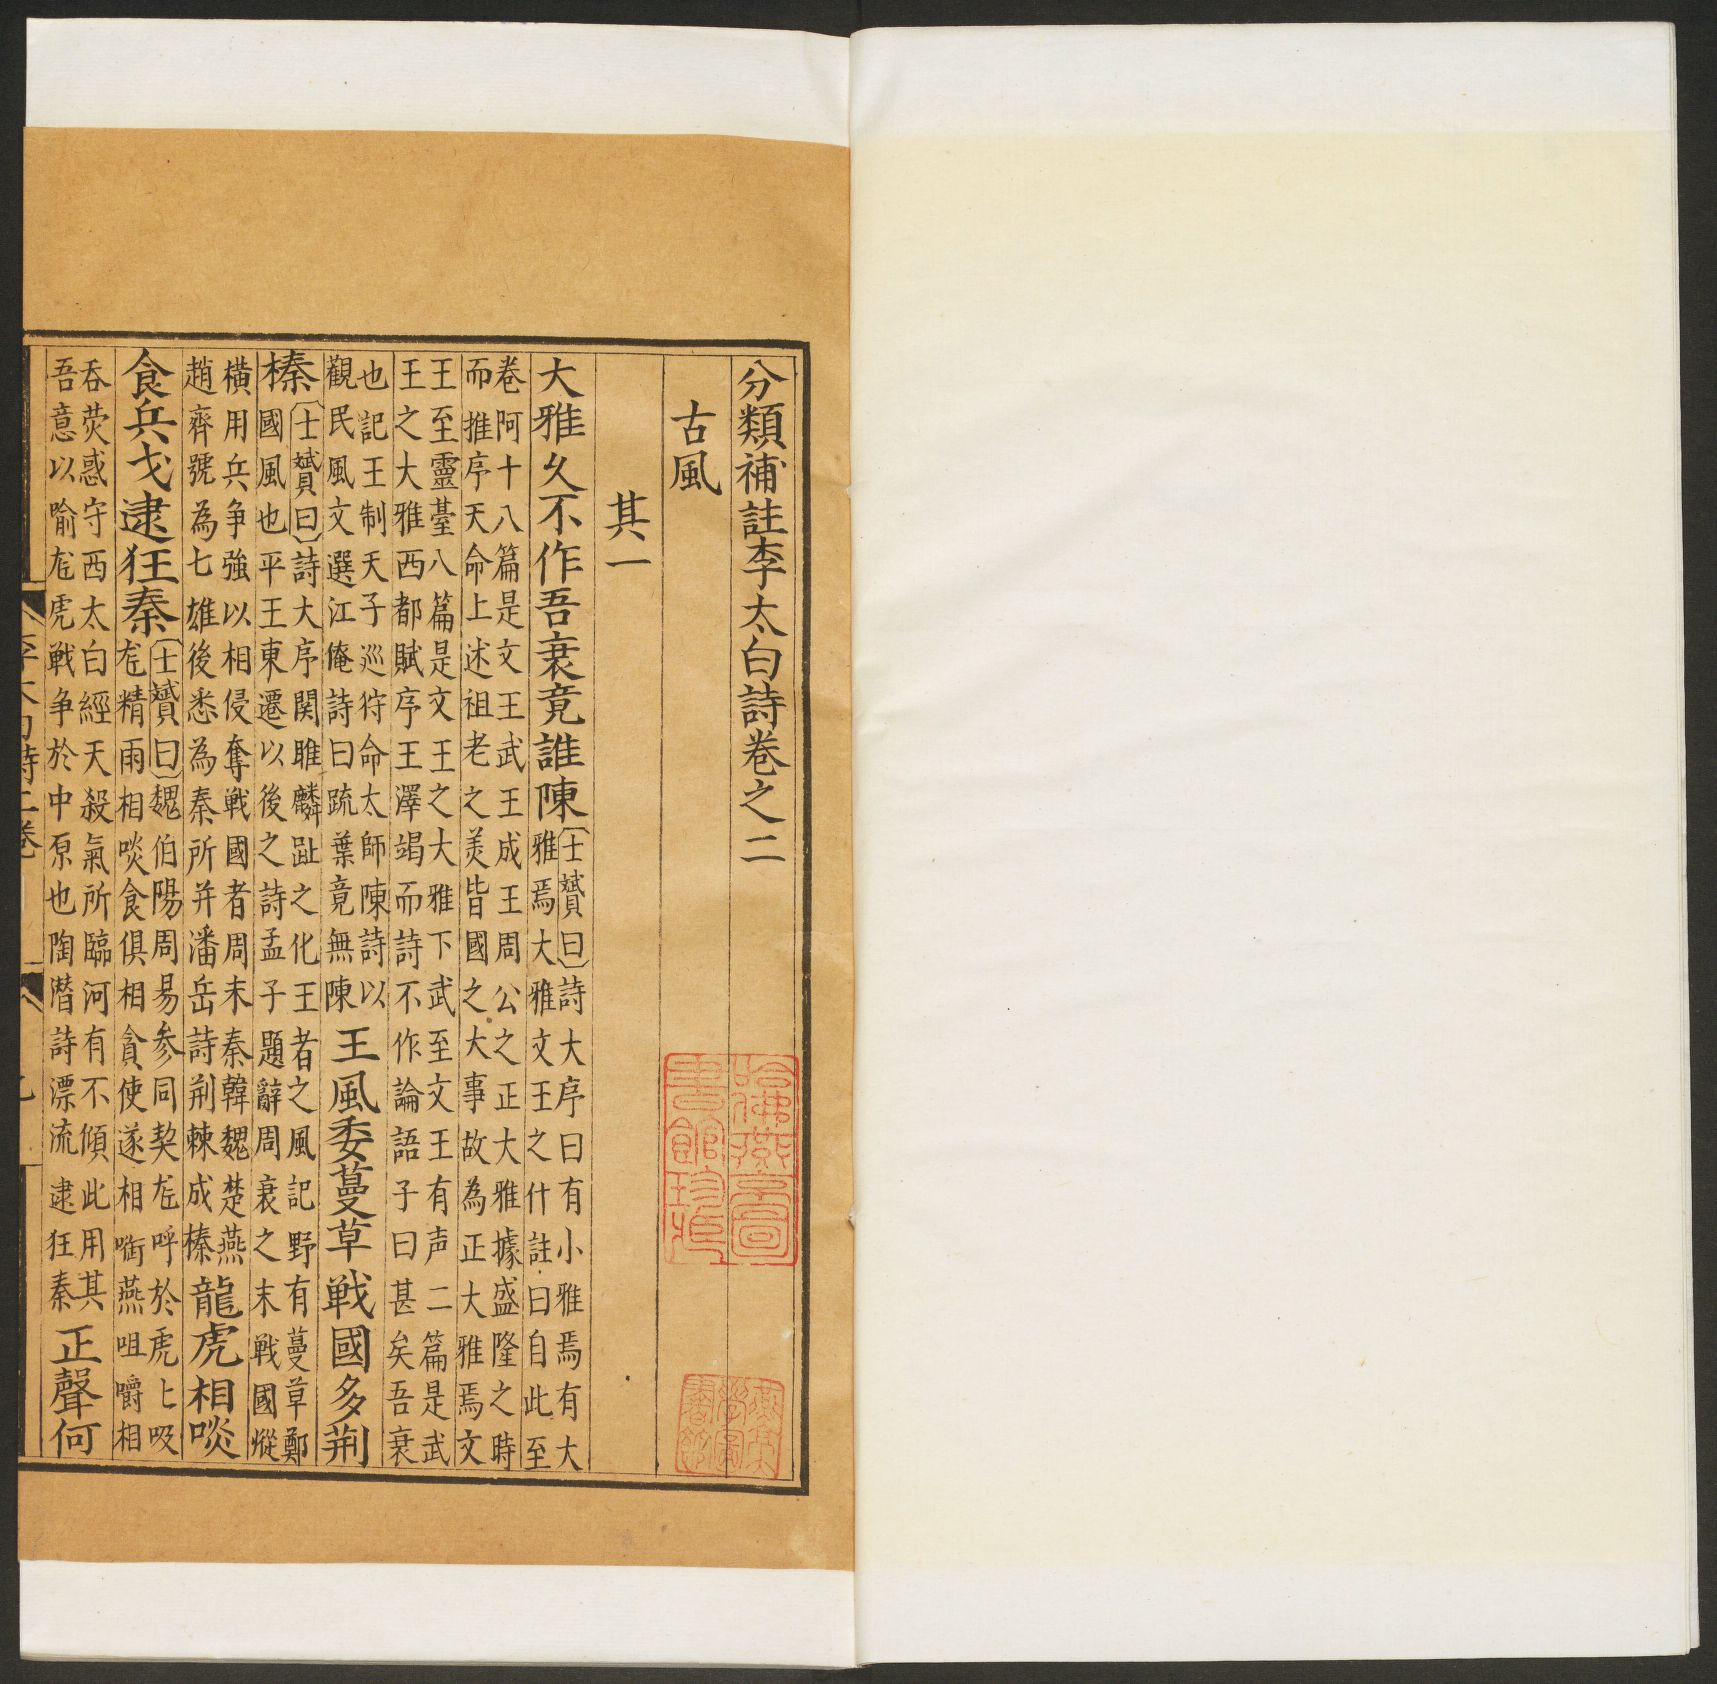 分類補註李太白詩卷之二
古風
其一
大雅久不作吾衰竟誰陳
〔士贇曰〕詩大序曰有小雅焉有大
雅焉大雅文王之什註曰自此至
卷阿十八篇是文王武王成王周公之正大雅據盛隆之時
而推序天命上述祖老之美皆國之大事故為正大雅焉文
王至靈臺八篇是文王之大雅下武至文王有声二篇是武
王之大雅西都賦序王澤竭而詩不作論語子曰甚矣吾衰
也記王制天子巡狩命太師陳詩以
觀民風文選江俺詩曰疏葉竟無陳
王風委蔓草戦國多荆
榛
〔士贇曰〕詩大序関睢麟趾之化王者之風記野有蔓草鄭
國風也平王東遷以後之詩孟子題辭周衰之末戦國縱
橫用兵争強以相侵奪戦國者周末秦韓魏楚燕
趙齊號為七雄後悉為秦所并潘岳詩荆棘成榛
龍虎相啖
食兵戈逮狂秦
〔士贇曰〕魏伯陽周易参同契尨呼於虎匕吸
尨精兩相啖食俱相貪使遂相㗸燕咀嚼相
吞荧惑守西太白經天殺氣所臨河有不傾此用其
吾意以喻尨虎戦争於中原也陶潛詩漂流逮狂秦
正聲何
李太白詩二卷
哈佛燕京圖書館珍藏